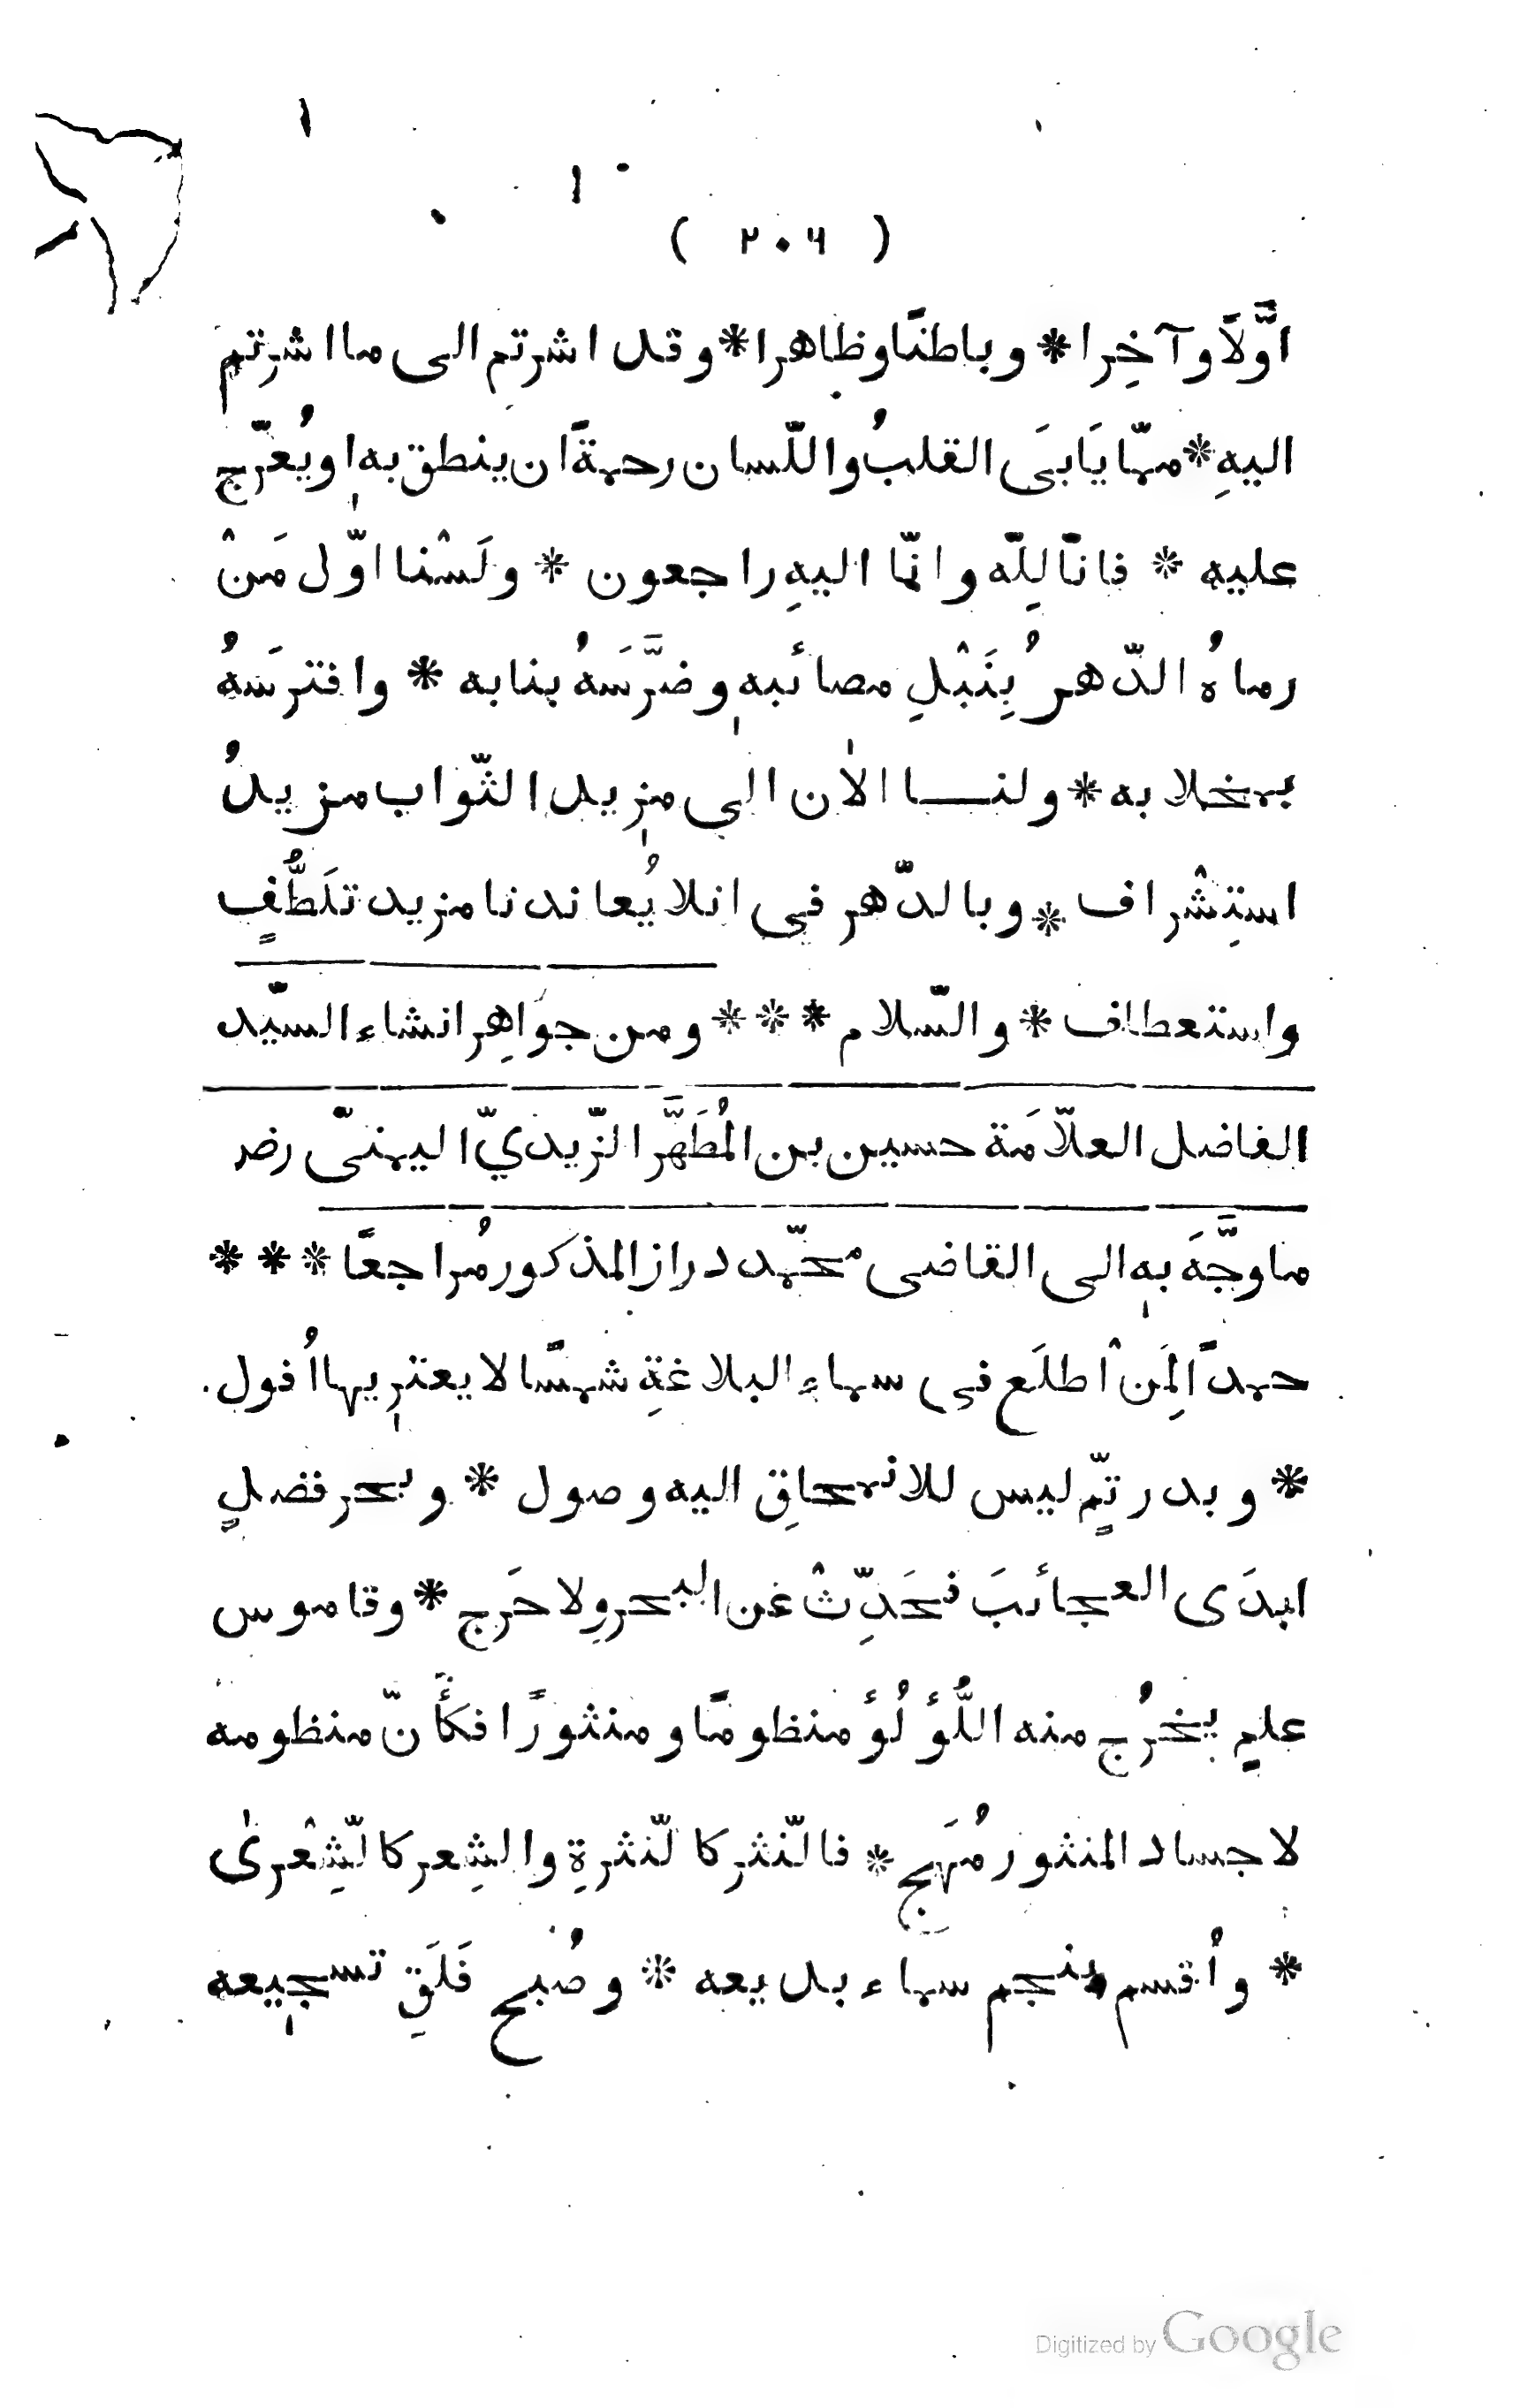 ( ٢٠٦ )
اوَّلًا وآخِرا * وباطنًا وظاهرا * وقد اشرتم الى ما اشرتم
اليهِ * ممّا يَابىَ القلبُ واللّسان رحمةً ان ينطق به او يُعرّج
عليه * فانّا لِلّه وانّا اليهِ راجعون * ولَسْنا اوّل مَنْ
رماهُ الدّهرُ بِنَبْلِ مصائبه وضرَّسَهُ بنابه * وافترسَهُ
بمخلابه * ولنا الآن الى مزيد الثّواب مزيدُ
استِشْراف * وبالدّهر فى انلا يُعاندنا مزيد تلَطُّفٍ
واستعطاف * والسّلام * * * ومن جوَاهِر انشاء السيّد
الفاضل العلاّمَة حسين بن المُطَهَّر الزّيديّ اليمنىّ رضه
ما وجَّهَ به الى القاضى محمّد دراز المذكور مُراجعًا * * *
حمدًا لِمَنْ اطلَع فى سماءِ البلاغةِ شمسًا لا يعتريها اُفول
* وبدر تمٍّ ليس للانمحاقِ اليه وصول * وبحر فضلٍ
ابدَى العجائبَ فحَدِّثْ عن البحر ولا حَرج * وقاموس
علمٍ يخرُج منه اللُّؤلُؤ منظومًا ومنثورًا فكأَنّ منظومه
لاجساد المنثور مُهَج * فالنّثر كالنّثرةِ والشِعر كالشِّعْرىٰ
* واُقسم بنجم سماء بديعه * وصُبح فَلَقِ تسجيعه
Digitized by Google